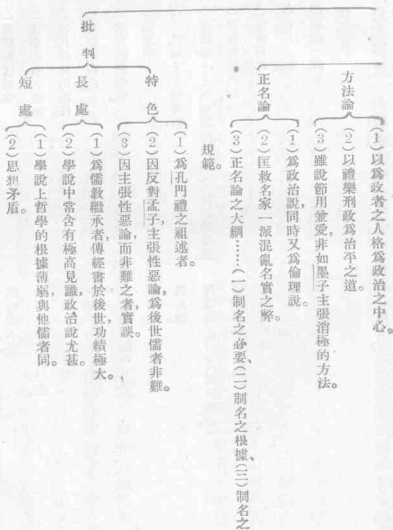 方法論
(1)以為政者之人格為政治之中心。
(2)以禮樂刑政為治平之道。
(3)雖說節用兼愛,非如墨子主張消極的方法。
正名論
(1)為政治說,同時又為倫理說。
(2)匡救名家一派混亂名實之弊。
(3)正名論之大綱……(一)制名之必要、(二)制名之根據、(三)制名之
規範。
批判
特色
(1)為孔門禮之祖述者。
(2)因反對孟子,主張性惡論,為後世儒者非難。
(3)因主張性惡論,而非難之者實誤。
長處
(1)為儒教繼承者,傳經書於後世,功績極大。
(2)學說中常含有極高見識,政治說尤甚。
短處
(1)學說上哲學的根據薄弱,與他儒者同。
(2)思想矛盾。